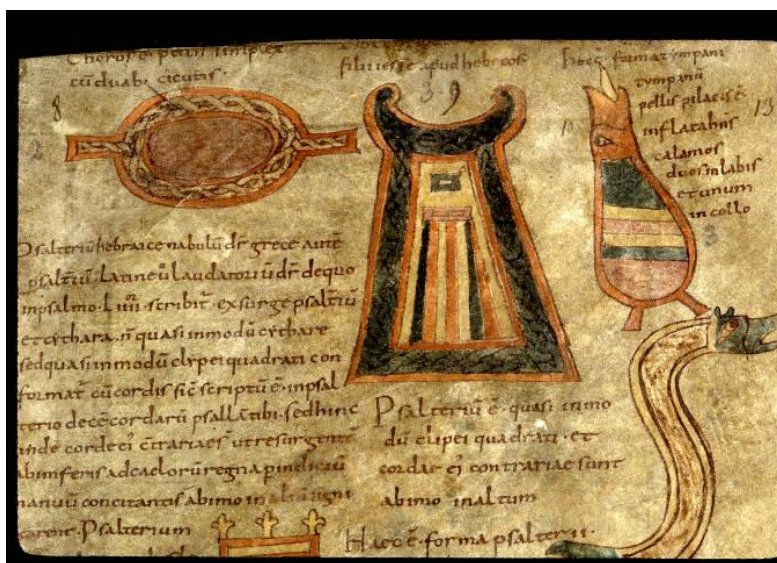 cū duab· cicutis·
filii iesse apud hebreos
haec format tympani
tympanū
pellis pilacis ē
inflatabiis
calamos
duos in labis
et unum
in collo
8
2
3 9
13
3
Psalteriū hebraice nabulū dr̄ grece autē
psaltiū· latine ū laudatoriū dr̄ de quo
in psalmo· scribit̄· exsurge psaltiū
et cythara· n̄ quasi in modū cythare
sed quasi in modū clypei quadrati con
format̄ cū cordis sic̄ scriptū ē· in psal
terio decē cordarū psallā tibi· sed hinc
inde corde ei citariaes ut resurgentē
ab inferis ad caelorū regna p indiciū
manuū concitantis ab imo in altū
Psalterium
Psalteriū ē· quasi in mo
dū clipei quadrati· et
cordae ei contrariae sunt
ab imo in altum
Haec ē· forma psalterii·